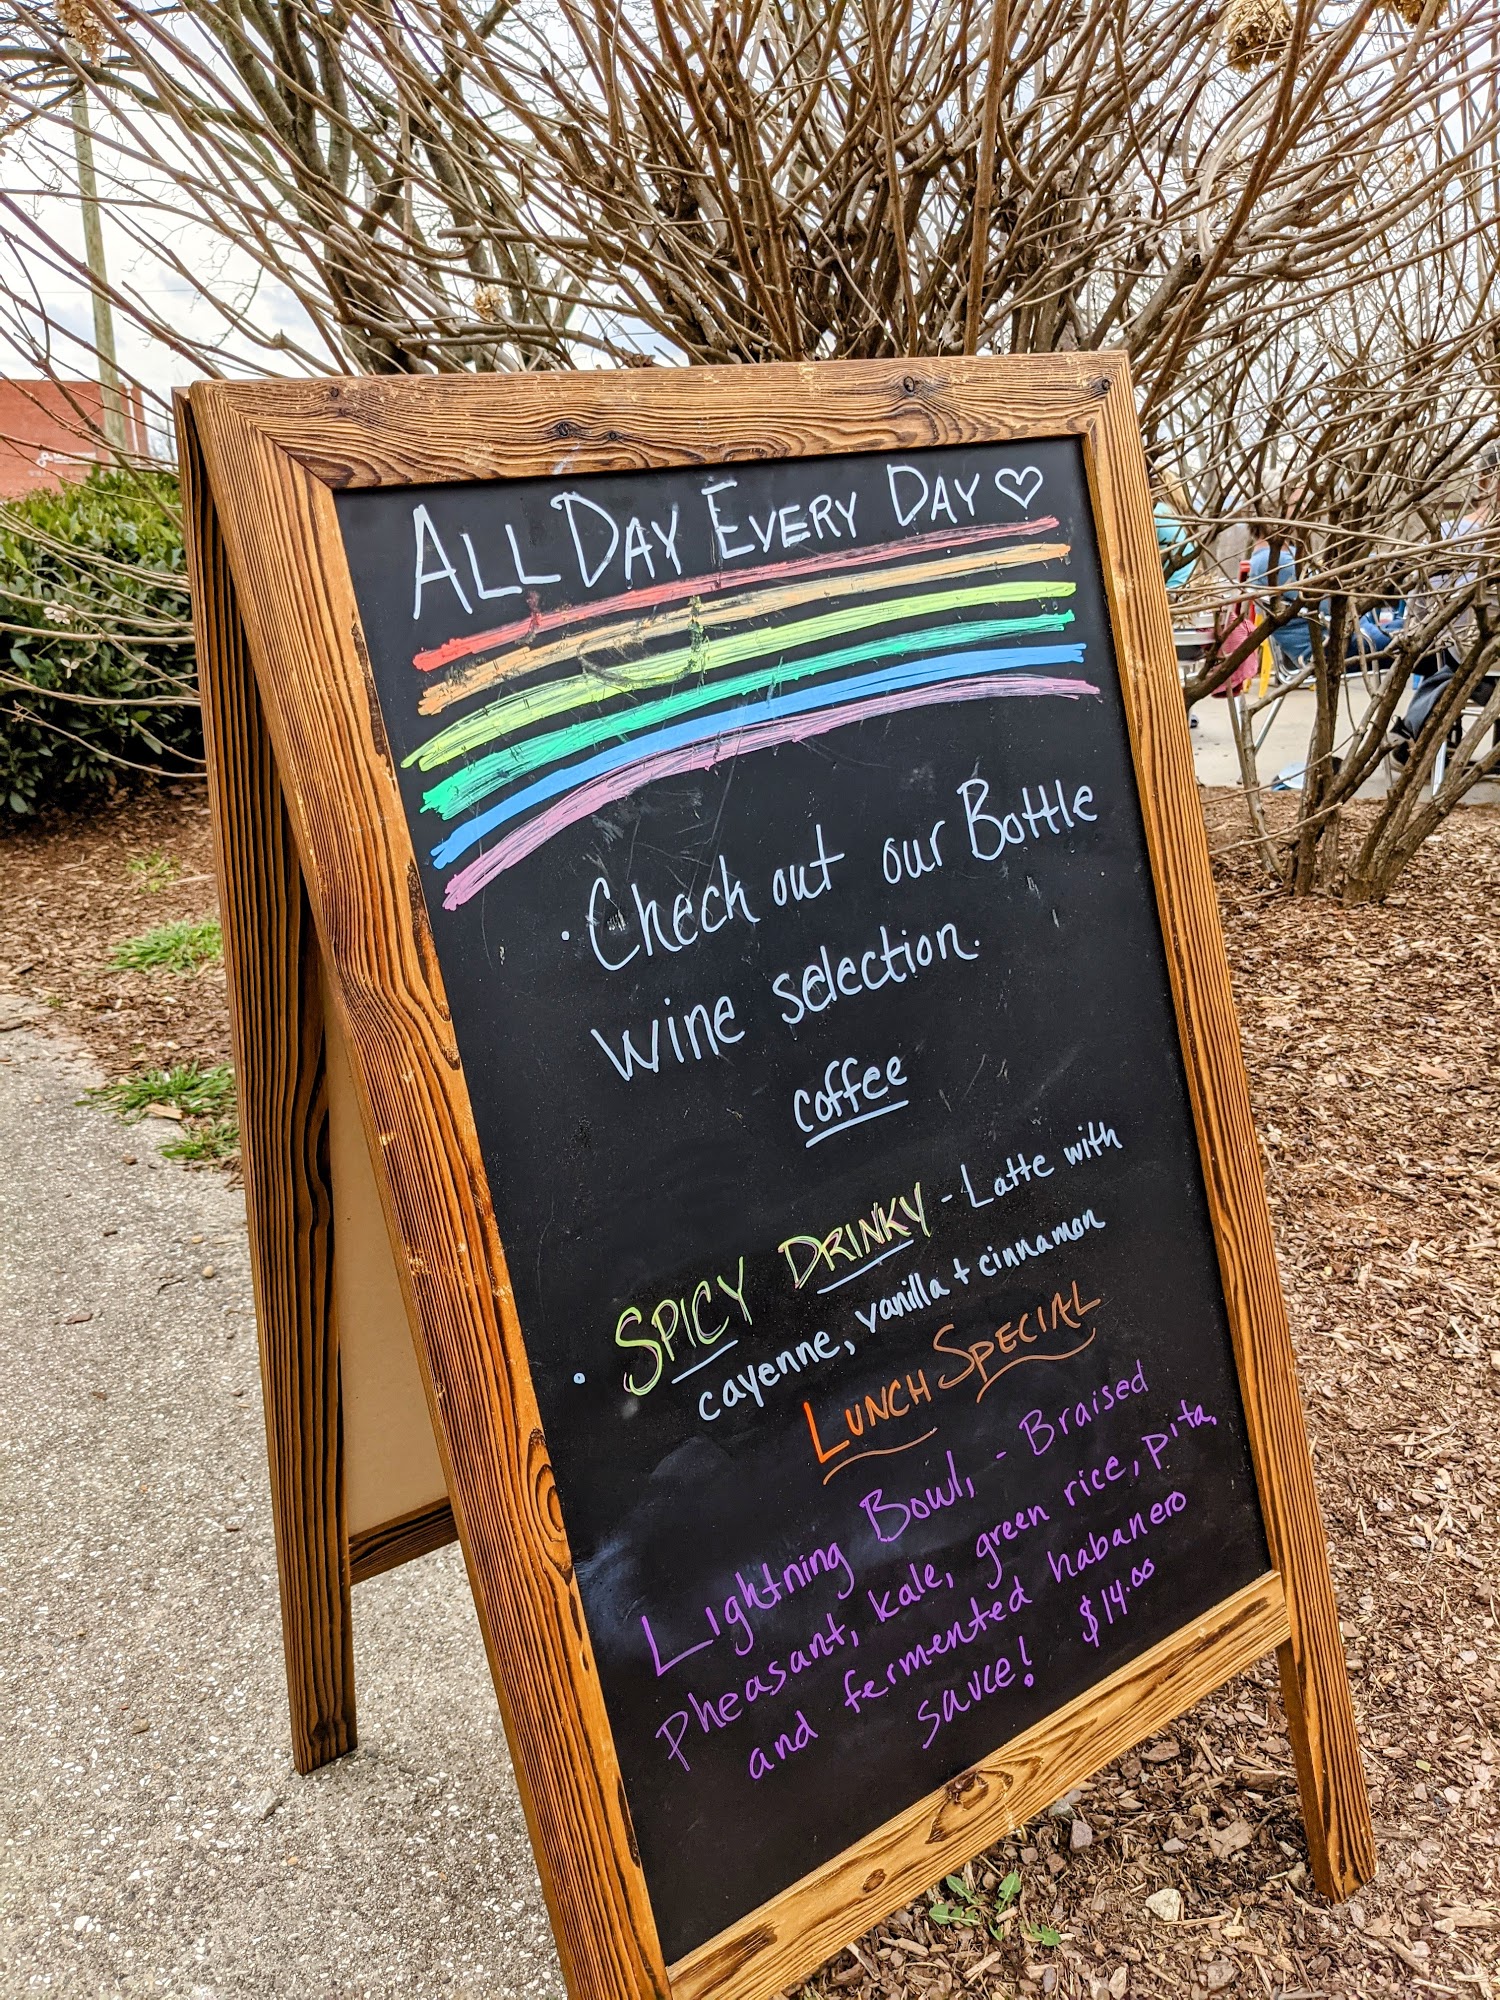 ALL DAY EVERY DAY ♡
· Check out our Bottle
wine selection.
coffee
· SPICY DRINKY - Latte with
cayenne, vanilla + cinnamon
LUNCH SPECIAL
Lightning Bowl, - Braised
Pheasant, kale, green rice, pita,
and fermented habanero
sauce! $14.00